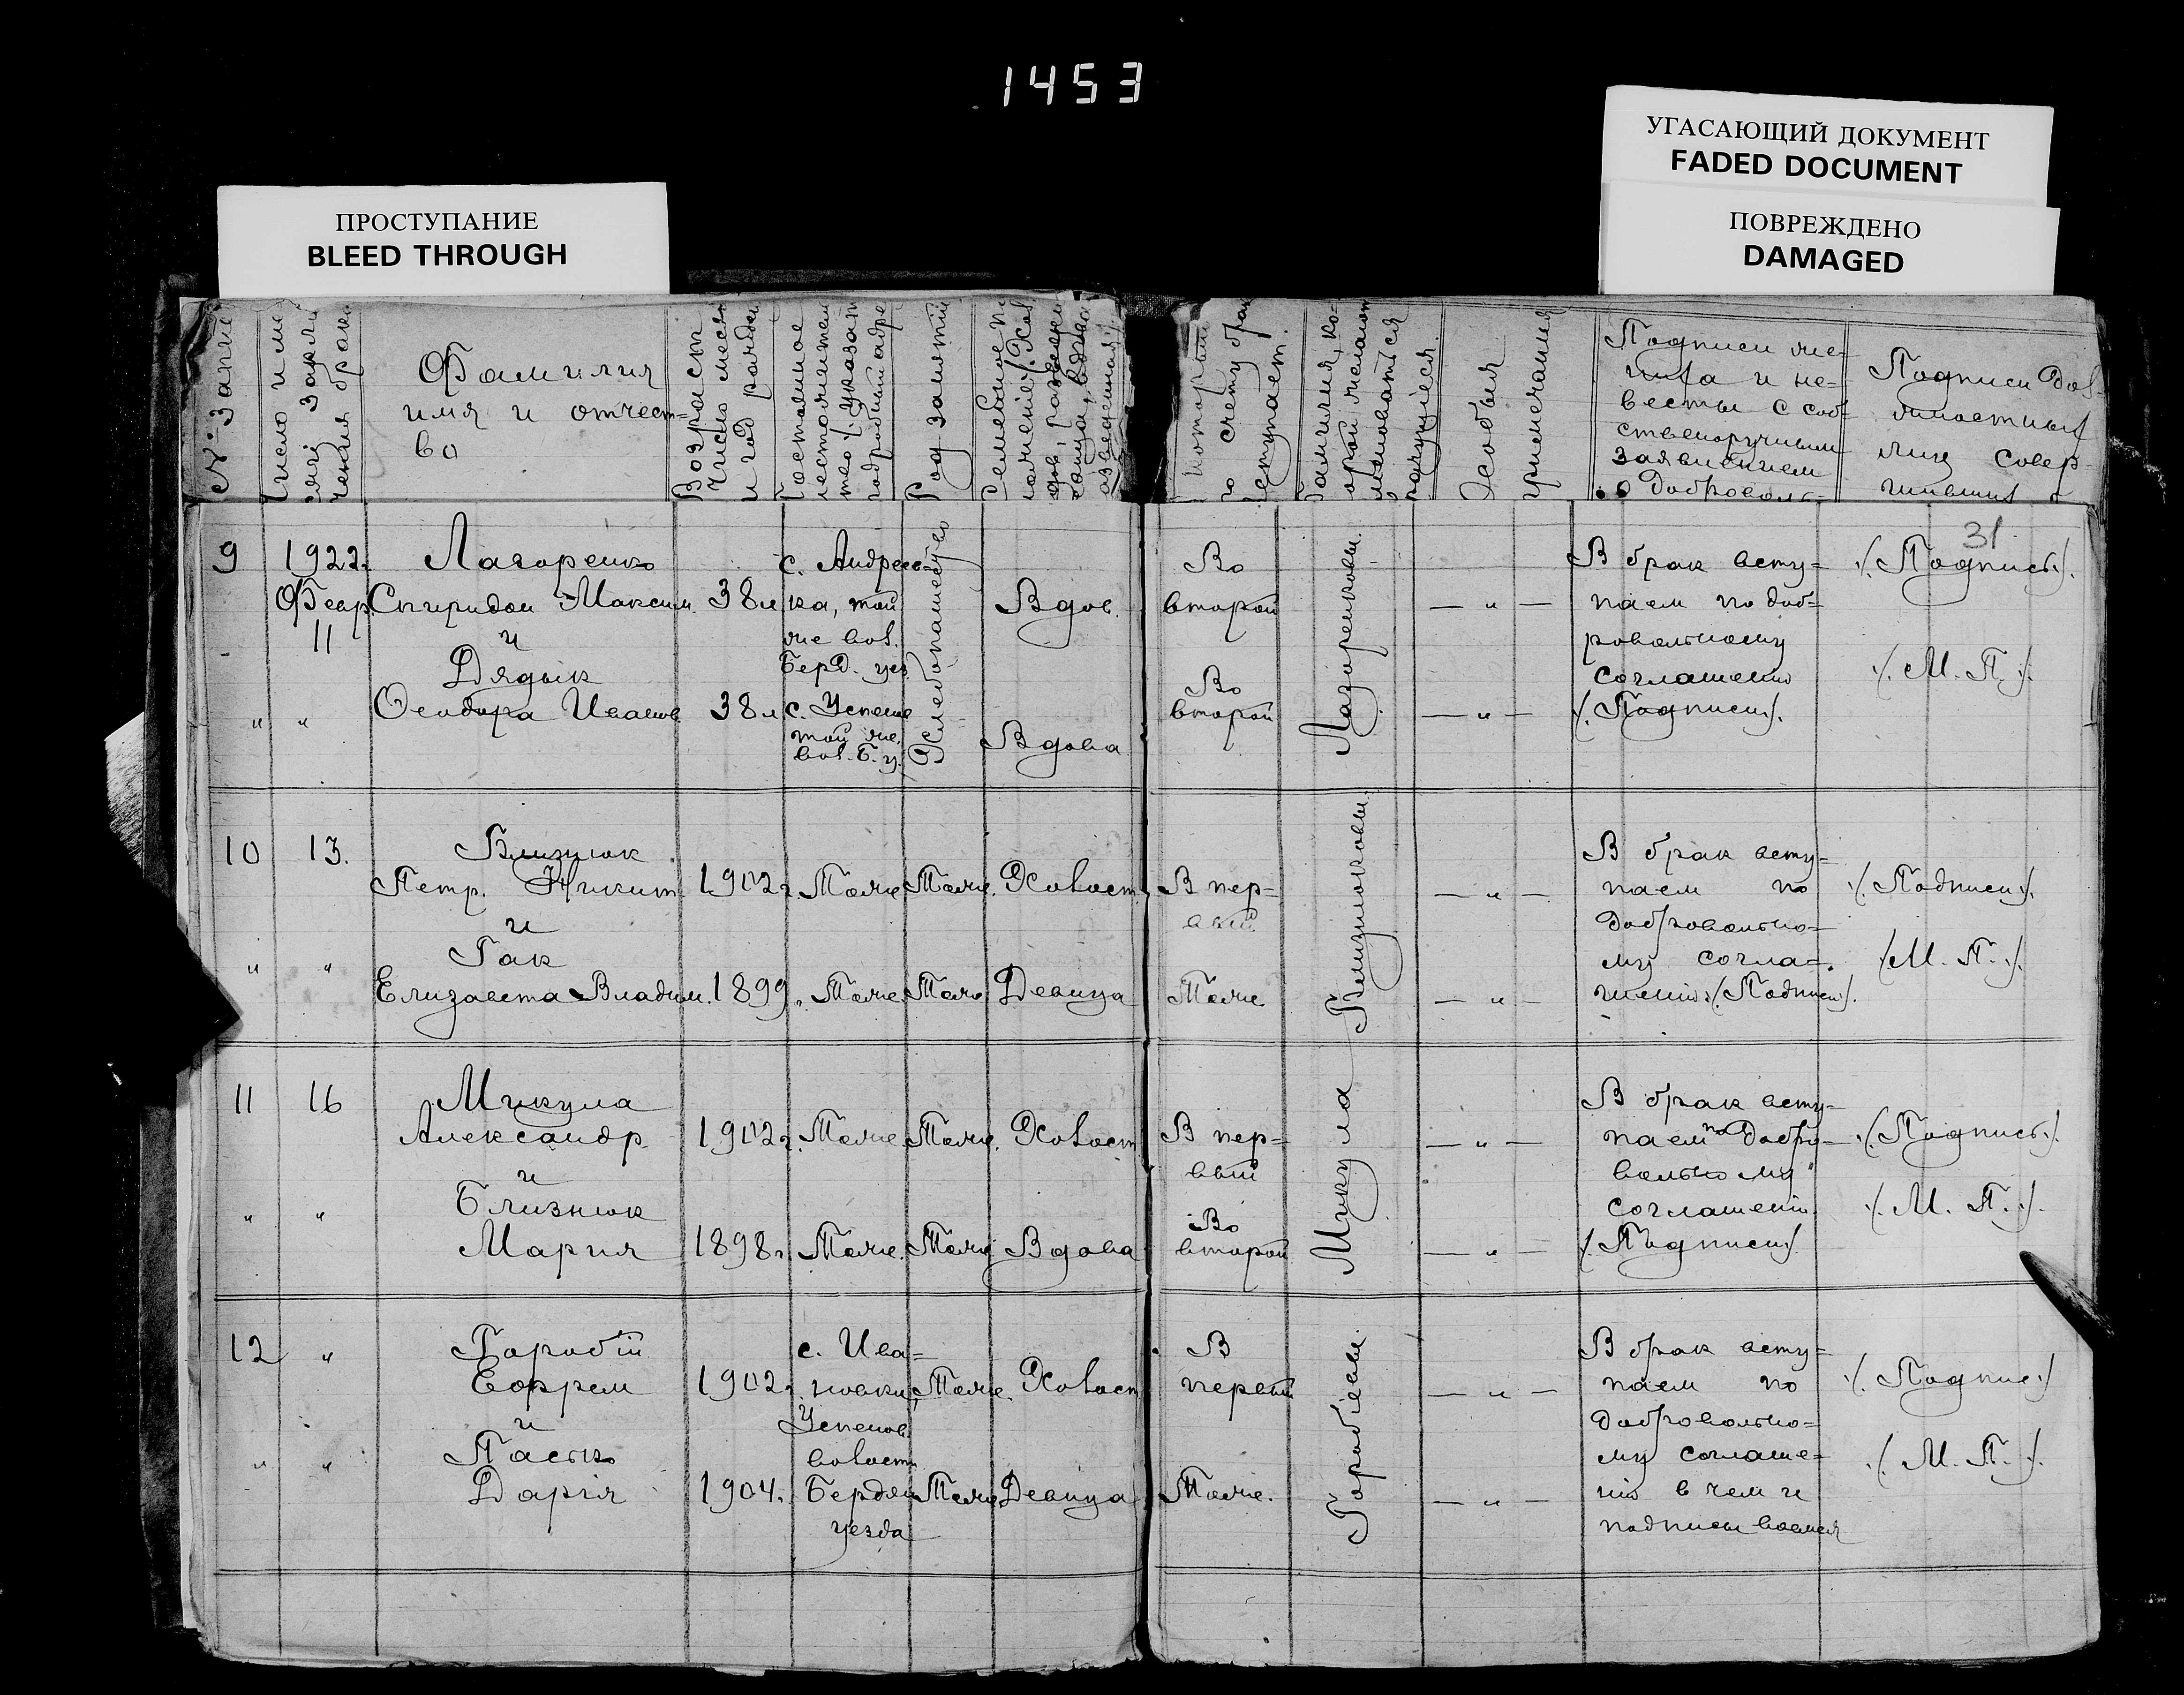 1453
УГАСАЮЩИЙ ДОКУМЕНТ
FADED DOCUMENT
ПОВРЕЖДЕНО
DAMAGED
ПРОСТУПАНИЕ
BLEED THROUGH
№ запи
Число и ме
заклю
чения брака
Фамилия
имя и отчест-
во
Возраст
Число месяц
и год рожден
Постоянное
местожитель
ство /. указат
подробный адре
Род занятий
Семейное по
ложение /. Хол
дов, разведен
В который
по счету брак
вступает.
Фамилия, ко-
торой желают
именоваться
брачущиеся.
Особыя
примечания
Подписи же-
ниха и не-
весты с соб-
ственоручным
заявлением
о доброволь-
Подписи дол-
жностных
лиц совер-
шивших
31
9
1922г.
Февр.
11
Лазоренко
Спиридон Максим.
и
Дядык
Феодора Иванов.
38 л
38 л
с. Андреев-
ка, той
же вол.
Берд. уез.
с. Успено
той же.
вол. Б. у.
Хлебопашество
Вдов.
Вдова
Во
второй
Во
второй
Лазоренковы.
— „ —
— „ —
В брак всту-
паем по доб-
ровольному
соглашению
/. Подписи /.
/. Подпись /.
/. М. П. /.
„ „
10
13.
Близнюк
Петр. Никит.
и
Гак
Елизавета Владим.
1902 г.
1899 г.
Тоже
Тоже
Тоже.
Тоже
Холост.
Девица
В пер-
вый
Тоже
Близнюковы.
— „ —
— „ —
В брак всту-
паем по
добровольно-
му согла-
шению /. Подписи /.
/. Подписи /.
/. М. П. /.
„ „
11
16
Микула
Александр
и
Близнюк
Мария
1902 г.
1898 г.
Тоже
Тоже.
Тоже.
Тоже
Холост
Вдова
В пер-
вый
Во
второй
Микула
— „ —
— „ —
В брак всту-
паем по добро-
вольному
соглашению
/. Подписи /.
/. Подпись /.
/. М. П. /.
„ „
12
„
Горобий
Ефрем
и
Пасько
Дария
1902 г.
1904 г.
с. Ива-
новки,
Успенов.
волости
Бердян
уезда
Тоже.
Тоже
Холост
Девица
В
первый
Тоже.
Горобіевы.
— „ —
— „ —
В брак всту-
паем по
добровольно-
му соглаше-
нию в чем и
подписываемся
/. Подпис /.
/. М. П. /.
„ „